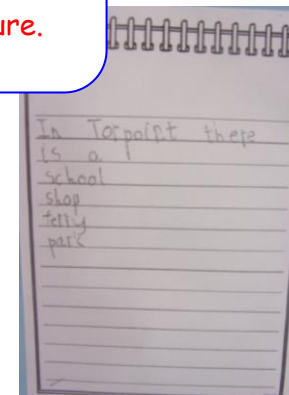 ure.
In Torpoint there
is a
school
shop
ferry
park